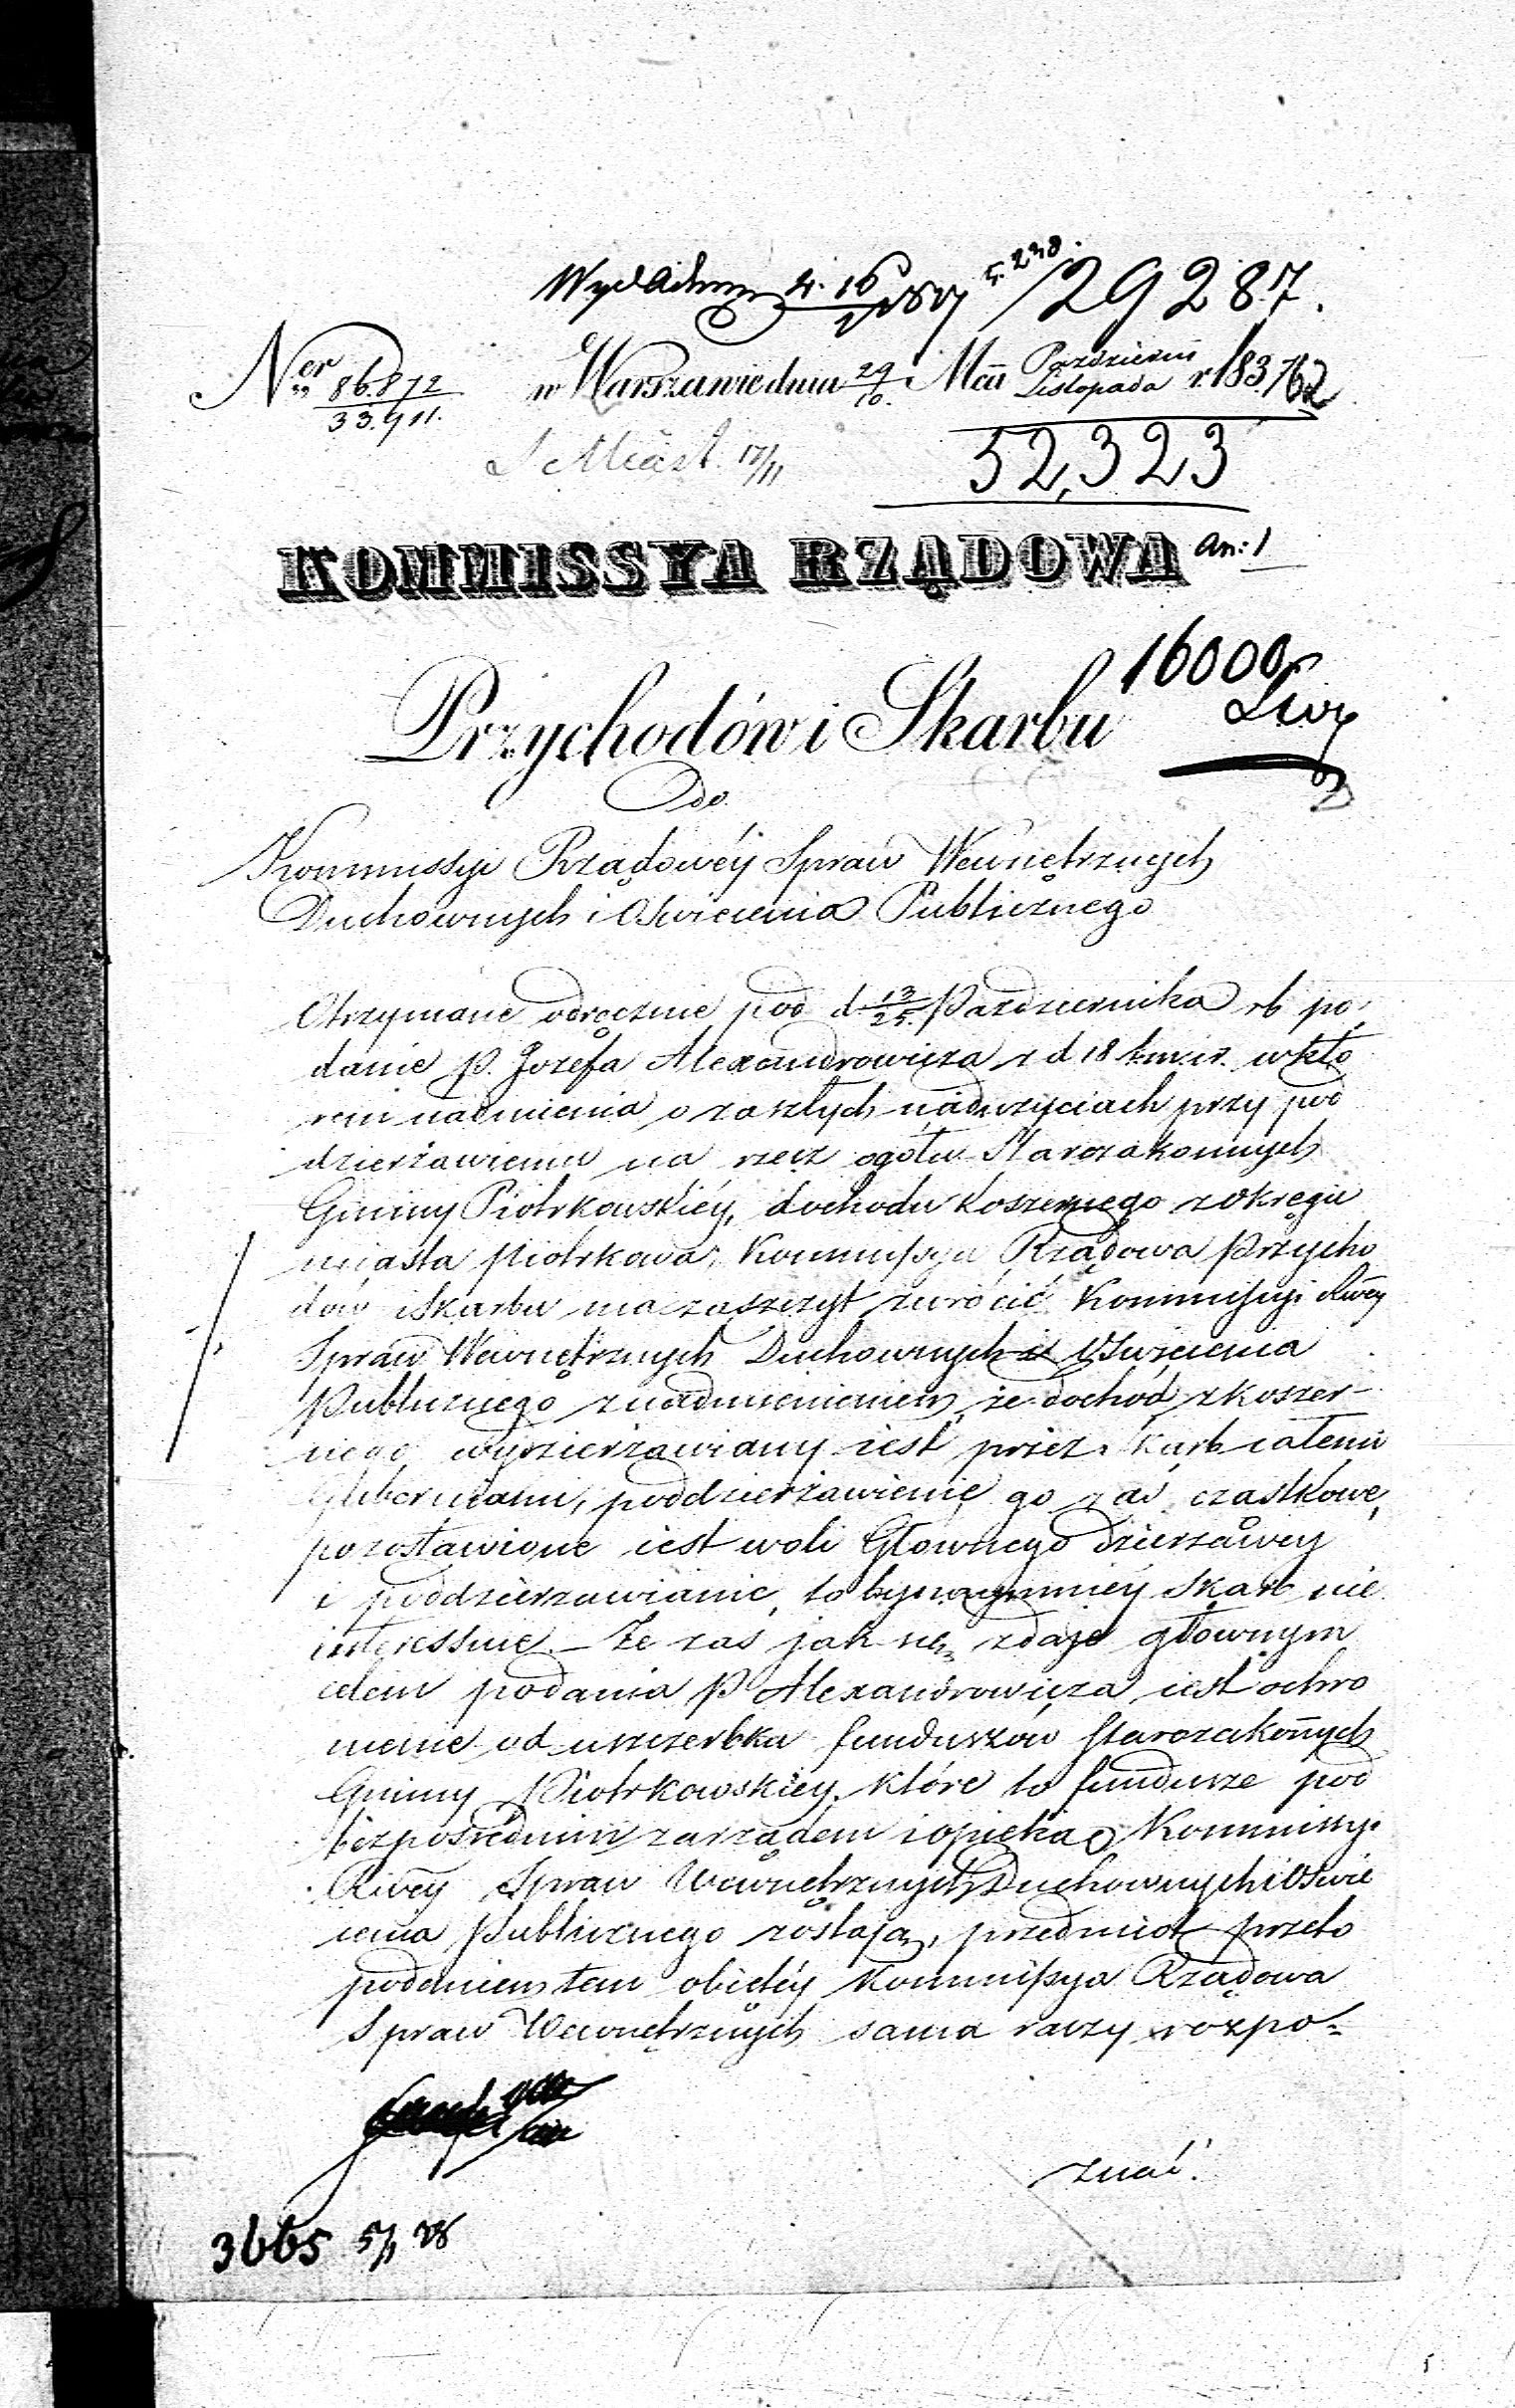 29287.
Ner 86.872 w Warszawie dnia 29/10. Mca Października Listopada r. 1837
33.911.
S Miast. 17/11 52,323
KOMMISSYA RZĄDOWA an: 1
16000
Przychodów i Skarbu
Do
Kommissyi Rządowéy Spraw Wewnętrznych
Duchownych i Oświecenia Publicznego
Otrzymane odręcznie pod d 13/25. Pazdziernika rb po,
danie P. Jozefa Alexandrowicza z d 18 t.m.ir. w któ
rem nadmienia o zaszłych nadużyciach przy pod
dzierżawieniu na rzecz ogołu Starozakonnych
Gminy Piotrkowskiéy, dochodu koszernego z okręgu
miasta Piotrkowa, Kommissya Rządowa Przycho
dów i Skarbu ma zaszczyt zwrócić Kommissyi Rwéy
Spraw Wewnętrznych Duchownych i Oświecenia
Publicznego z nadmienieniem, że dochód z koszer-
nego wydzierżawiany iest przez Skarb całemi
Guberniami, poddzierżawienie go zaś cząstkowe,
pozostawione iest woli Głownego Dzierżawcy
i poddzierzawianie to bynaymniéy Skarb nie
interessuie. - Że zaś jak się zdaje głównym
celem podania P Alexandrowicza iest ochro
nienie od uszczerbku funduszów Starozakonnych
Gminy Piotrkowskiey, które to fundusze pod
bezpośrednim zarządem i opieką Kommissyi
Rwéy Spraw Wewnętrznych Duchownych i Oświe
cenia Publicznego zostają, przedmiot przeto
podaniem tem obięty Kommissya Rządowa
Spraw Wewnętrznych sama raczy rozpo-
znać.
3665 5/1 38